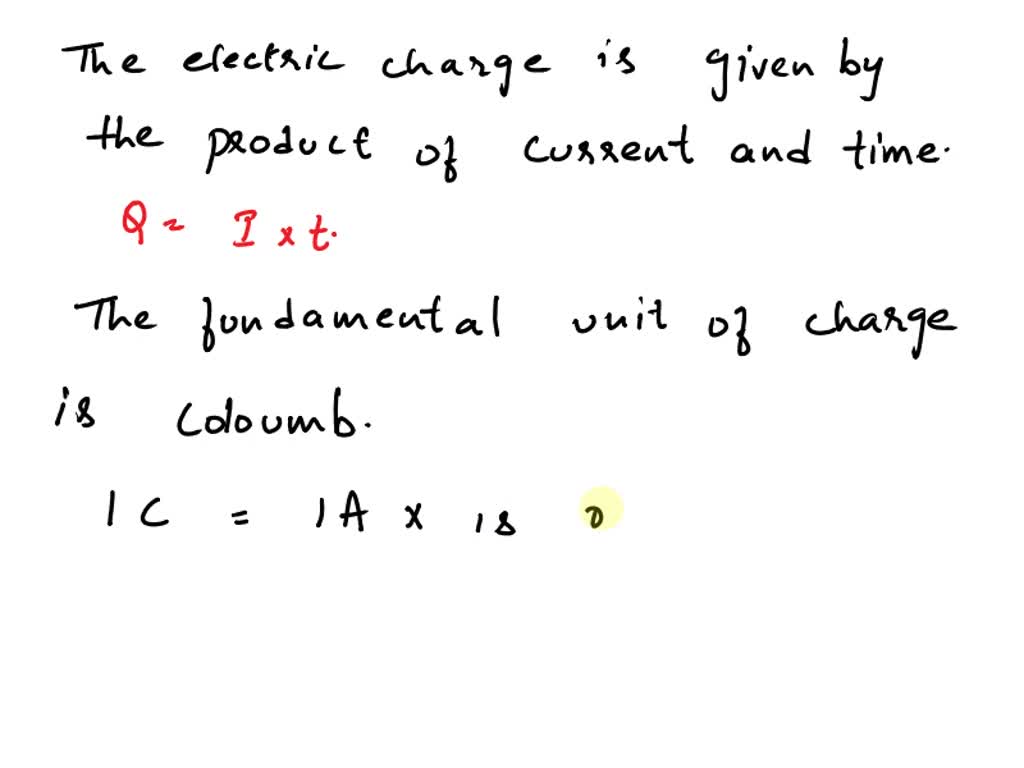 The electric charge is given by
the product of current and time.
Q = I x t.
The fundamental unit of charge
is Coloumb.
1 C = 1 A x 1s